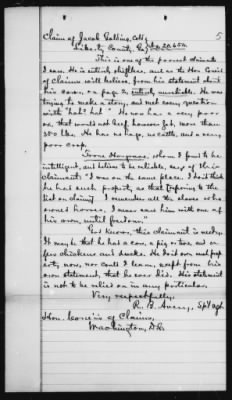 Claim of Jacob Dallins, Col'd
Liberty County, Ga. No. 20,654
5
This is one of the poorest claimants
I saw. He is entirely shiftless, and as the Hon Com'rs
of Claims will believe, from his statement about
his cow, on page 2, entirely unreliable. He was
trying to make a story, and met every question
with "hah? hah?" He now has a very poor
ox, that would not keep, however fed, more than
350 lbs. He has no hogs, no cattle, and a very
poor crop.
Toney Haymans, whom I found to be
intelligent, and believe to be reliable, says of this
claimant: "I was on the same place. I don't think
he had such property, as that (referring to the
list on claim). I remember all the slaves who
owned horses. I never saw him with one of
his own, until freedom."
God knows, this claimant is needy.
It may be that he had a cow, a pig or two, and a
few chickens and ducks. He don't own such prop-
erty, now, nor could I learn, except from his
own statement, that he ever did. His statement
is not to be relied on in any particular.
Very respectfully,
R. B. Avery, Sp'l Agt.
Hon. Com'rs of Claims,
Washington, D.C.